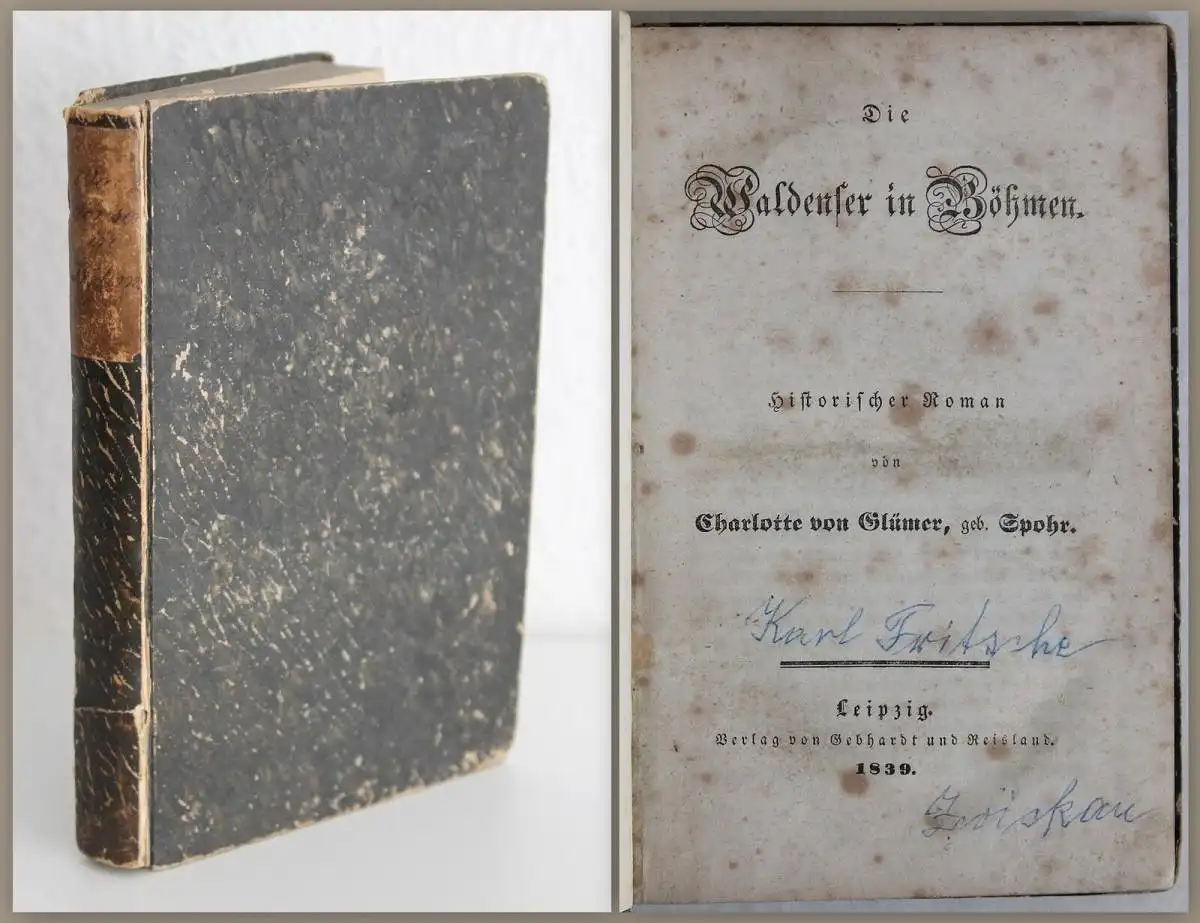 Die
Waldenser in Böhmen.
Historischer Roman
von
Charlotte von Glümer, geb. Spohr.
Karl Fritzsche
Leipzig.
Verlag von Gebhardt und Reisland.
1839.
Zwickau